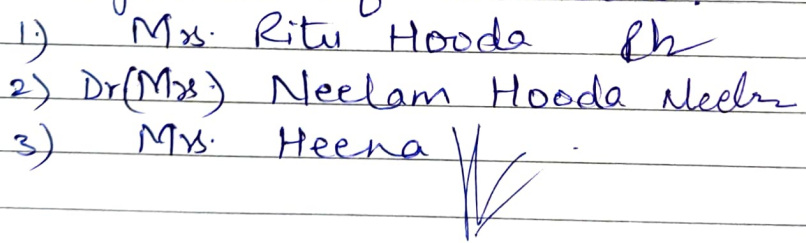 1) Mrs. Ritu Hooda
2) Dr(Mrs.) Neelam Hooda
3) Mrs. Heena